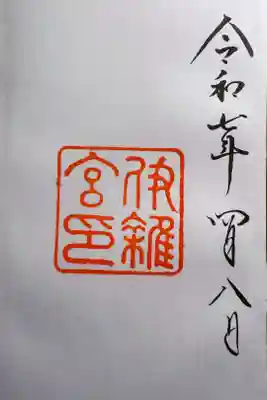 令和七年四月八日
伊雜
宮印